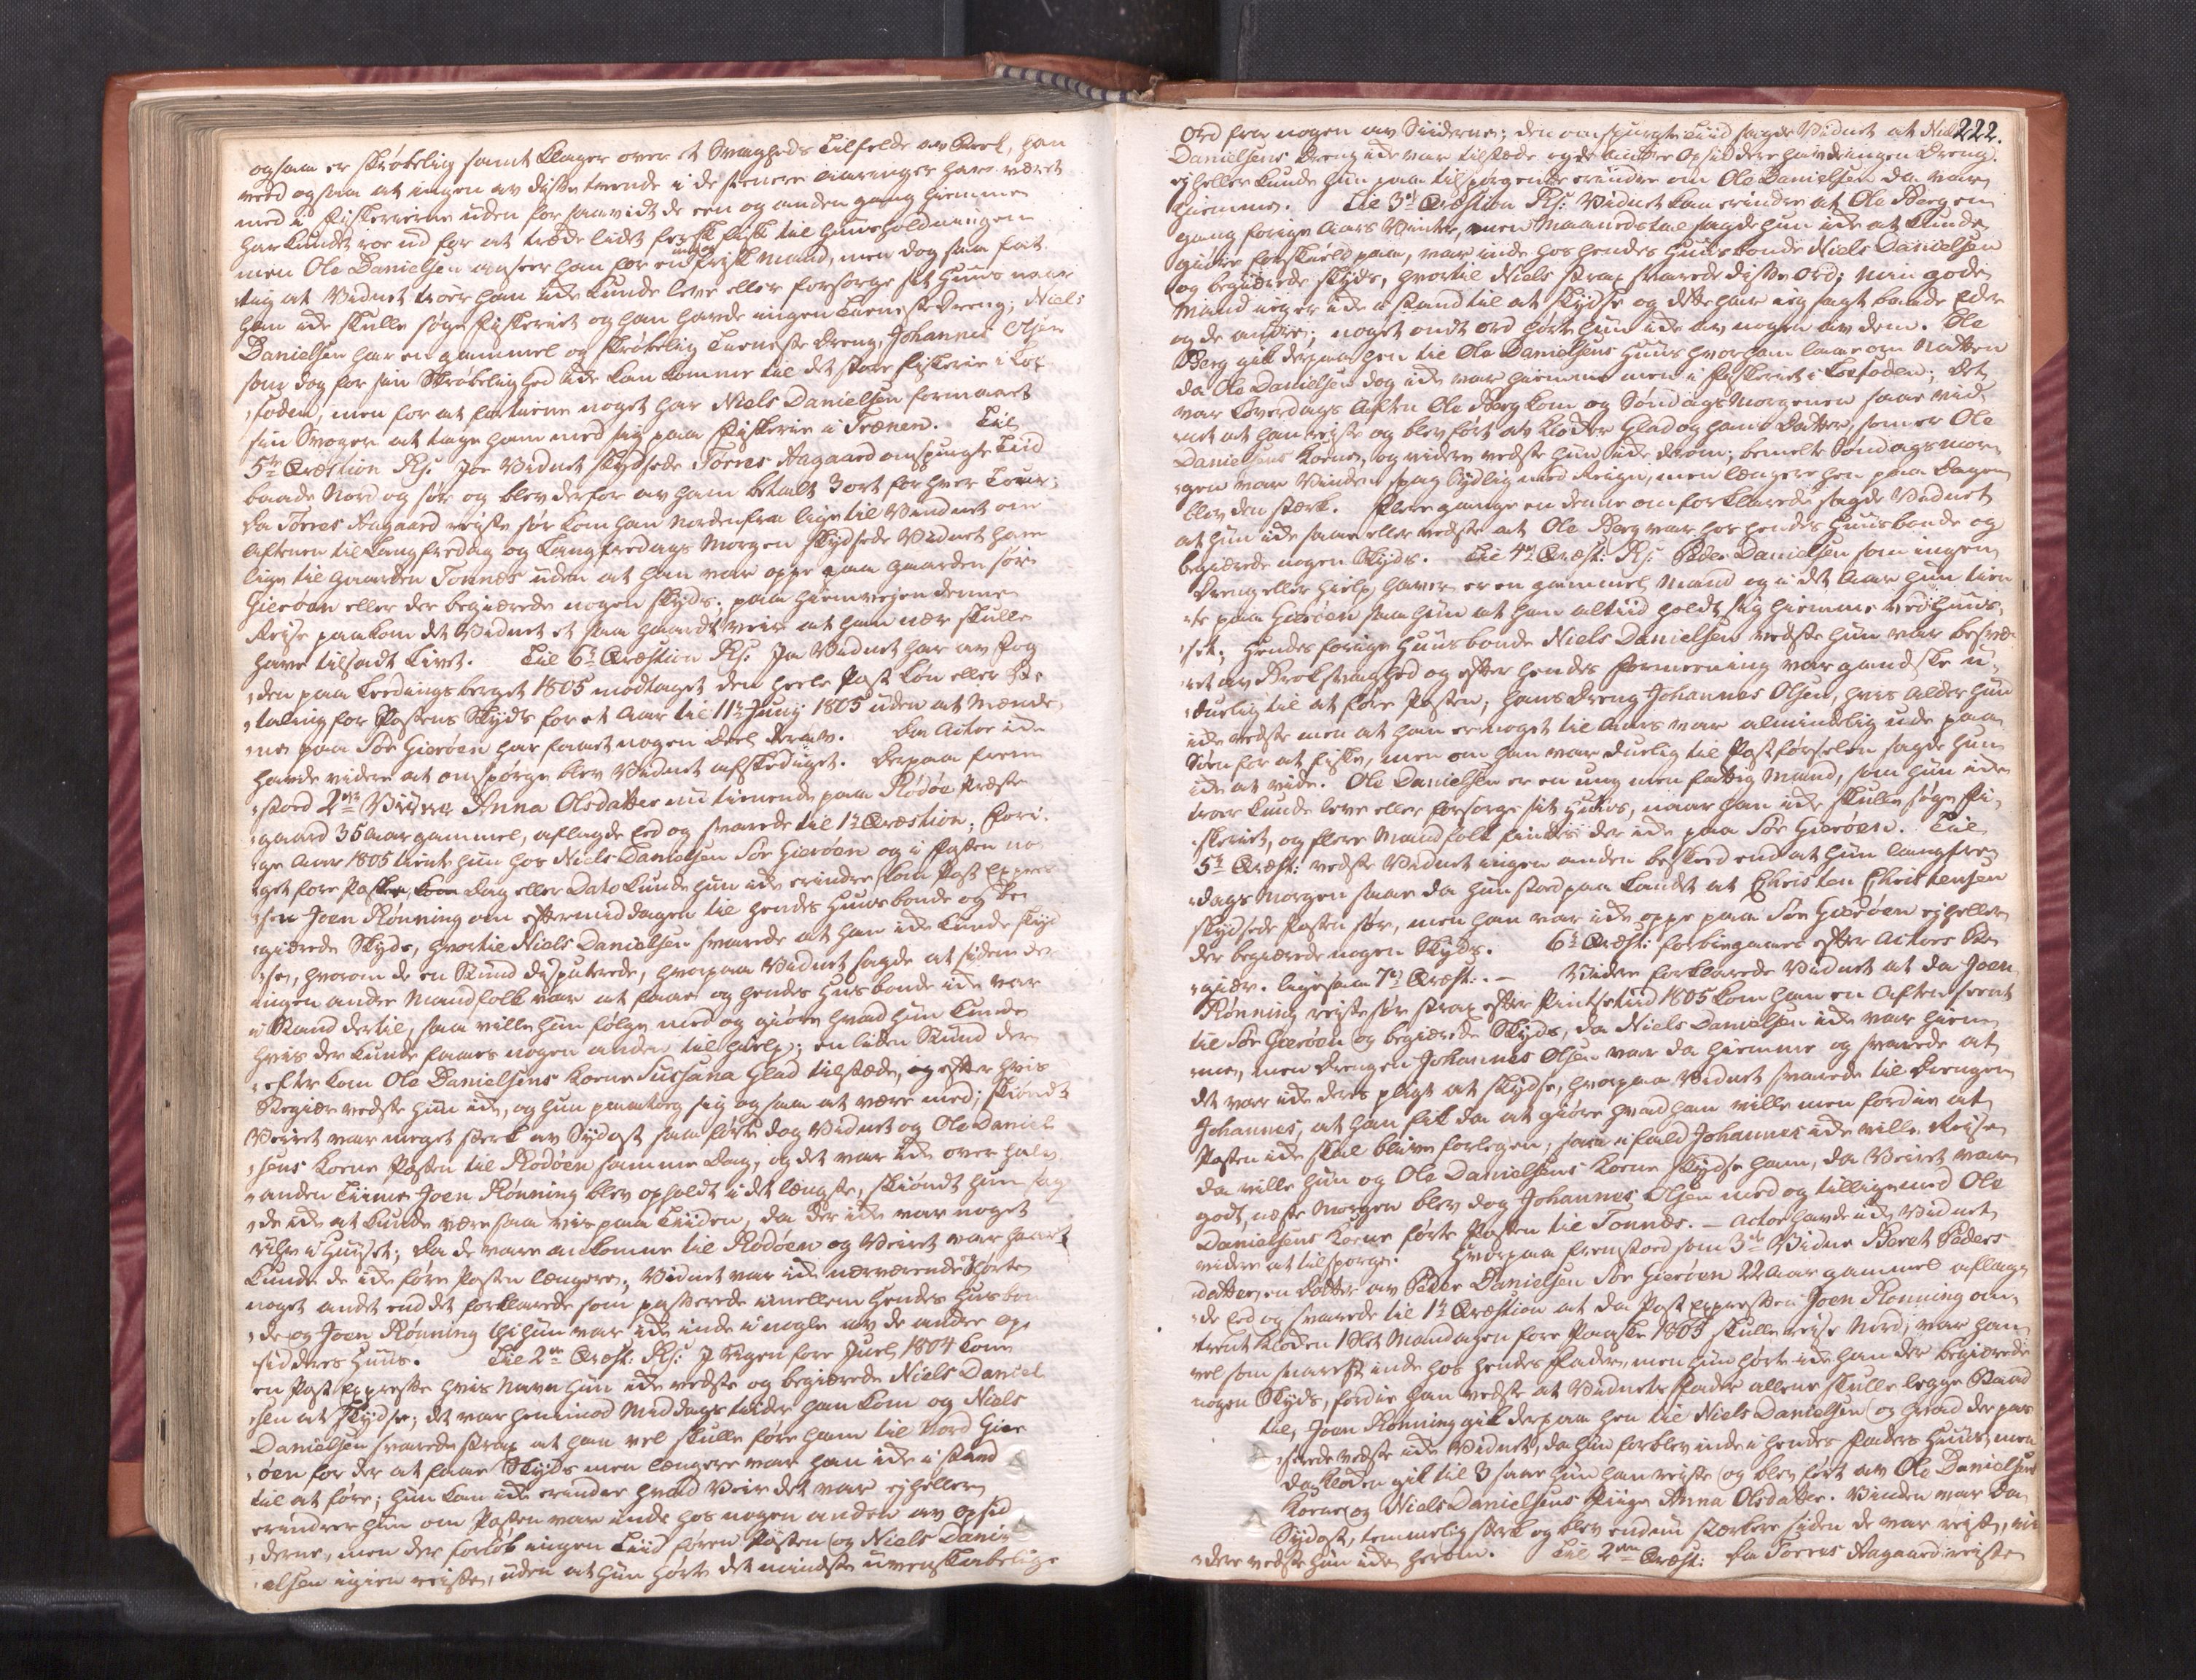 ogsaa er skrøbelig samt klager over et Svagheds Tilfelde av Brok, han
veed ogsaa at ingen av disse tvende i de senere Aaringer har været
med i Fiskerierne uden for saavidt de een og anden gang hiemme
har kundet roe ud for at træde lidt fersk fisk til Huusholdningen
men Ole Danielsen anseer han for en frisk Mand, men dog saa fat-
tig at Vidnet troer han icke kunde leve eller forsørge sit Huus naar
han icke skulle søge Fiskeriet og han havde ingen Tieneste Dreng; Niels
Danielsen har en gammel og skrøbelig Tieneste Dreng, Johannes Olsen
som dog for sin Skrøbelighed icke kan komme til det store Fiskerie i Lof-
foden, men for at fortiene noget har Niels Danielsen formaaet
sin Svoger at tage ham med sig paa Fiskerie i Trænen. Til
5te Qvæstion Rs: Joe Vidnet skydsede Torres Aagaard omspurgte Tiid
baade Nord og sør og blev derfor av ham betalt 3 ort for hver Tour;
da Torres Aagaard reiste sør kom han Nordenfra lige til Vidnet om
Aftenen til Langfredag og Langfredags Morgen skydsede Vidnet ham
lige til gaarden Tonnæs uden at han var oppe paa gaarden sør
Gierøen eller der begiærede nogen skyds; paa hiemveyen denne
Reise paakom det Vidnet et saa haardt Veir at han nær skulle
have tilsadt Livet. Til 6te Qvæstion Rs: Ja Vidnet har av Fog-
den paa Leedings berget 1805 modtaget den heele Post Løn eller Be-
taling for Postens Skyds for et Aar til 11te Juny 1805 uden at Mænde-
ne paa Sør Gierøen har faaet nogen Deel derav. Da Actor icke
havde videre at omspørge blev Vidnet afskediget. Derpaa frem-
stoed 2det Vidne Anna Olsdatter nu tienende paa Rødøe Præste-
gaard 35 Aar gammel, aflagde Eed og svarede til 1te Qvæstion; Fori-
ge Aar 1805 tiente hun hos Niels Danielsen Sør Gierøen og i Fasten no-
get fore Paaske, Dag eller Dato kunde hun icke erindre kom Post Expres-
sen Joen Rønning om eftermiddagen til hendes Huusbonde og be-
giærede Skyds, hvortil Niels Danielsen svarede at han icke kunde skyd-
se, hvorom de en Stund disputerede, hvorpaa Vidnet sagde at siden der
ingen andre Mandfolk var at faae og hendes Husbonde icke var
i Stand dertil, saa ville hun følge med og giøre hvad hun kunde
hvis der kunde faaes nogen anden til hielp; en liden Stund der-
efter kom Ole Danielsens Koene Sussana Glad tilstæde, og efter hvis
Begiær vedste hun icke, og hun paatog sig ogsaa at være med; skiøndt
Veiret var meget sterk av Sydost saa førte dog Vidnet og Ole Daniel-
sens Koene Posten til Rødøen samme Dag, og det var icke over halv-
anden Tiime Joen Rønning blev opholdt i det længste, skiøndt hun sag-
de icke at kunde være saa vis paa Tiiden, da der icke var noget
Uhr i Huuset; da de vare ankomne til Rødøen og Veiret var haart
kunde de icke føre Posten længere; Vidnet var icke nærværende hørte
noget andet end det forklarede som passerede imellem hendes Husbon-
de og Joen Rønning thi hun var icke inde i nogle av de andre Op-
sidderes Huus. Til 2den Qvæst: Rs: I Ugen fore Juel 1804 kom
en Post Expresse hvis Navn hun icke vedste og begiærede Niels Daniel-
sen at skydse; det var henimod Middags tiider han kom og Niels
Danielsen svarede strax at han vel skulle føre ham til Nord Gier-
øen for der at faae Skyds men længere var han icke i stand
til at føre; hun kan icke erindre hvad Veir det var ej heller
erindrer hun om Posten var inde hos nogen anden av Opsid-
derne, men der forløb ingen Tiid førend Posten og Niels Dani-
elsen igien reiste, uden at hun hørte det mindste uvenskabelige
222.
Ord fra nogen av Siiderne; den omspurgte Tiid sagde Vidnet at Niels
Danielsens Dreng icke var tilstæde og de andre Opsiddere havde ingen Dreng.
ej heller kunde hun paa tilspørgende erindre om Ole Danielsen da var
hiemme. Til 3die Qvæstion Rs: Vidnet kan erindre at Ole Berg en
gang forige Aars Vinter, men Maanedstal sagde hun icke at kunde
giøre forskield paa, var inde hos hendes Huusbonde Niels Danielsen
og begiærede skyds, hvortil Niels strax svarede disse Ord; min gode
Mand ieg er icke i stand til at skydse og dette har ieg sagt baade Eder
og de andre; noget ondt ord hørte hun icke av nogen av dem. Ole
Berg gik derpaa hen til Ole Danielsens Huus hvor han laae om Natten
da Ole Danielsen dog icke var hiemme men i Fiskeriet i Loffoden; det
var Løverdags Aften Ole Berg kom og Søndags Morgenen saae Vid-
net at han reiste og blev ført av Kloder Glad og hans Datter, som er Ole
Danielsens Koene, og videre vedste hun icke derom; bemelte Søndags mor-
gen var Vinden spag Sydlig med Reign, men længere hen paa Dagen
blev den sterk. Flere gange en denne omforklarede sagde Vidnet
at hun icke saae eller vedste at Ole Berg var hos hendes Huusbonde og
begiærede nogen Skyds. Til 4de Qvæst: Rs: Peder Danielsen som ingen
Dreng eller hielp haver er en gammel Mand og i det Aar hun tien-
te paa Gierøen saae hun at han altiid holdt sig hiemme ved Huus-
set; Hendes forige Huusbonde Niels Danielsen vedste hun var besvæ-
ret av Brok svaghed og efter hendes formeening var gandske u-
duelig til at føre Posten, hans Dreng Johannes Olsen, hvis Alder hun
icke vedste men at han er noget til Aars var almindelig ude paa
Søen for at fiske, men om han var duelig til Postførselen sagde hun
icke at vide. Ole Danielsen er en ung men fattig Mand, som hun icke
troer kunde leve eller forsørge sit Huus, naar han icke skulle søge Fi-
skeriet, og flere Mandfolk findes der icke paa Sør Gierøen. Til
5te Qvæst: vedste Vidnet ingen anden beskeed end at hun Langfre-
dags Morgen saae da hun stoed paa Landet at Christen Christensen
skydsede Posten sør, men han var icke oppe paa Sør Gierøen ej heller
der begiærede nogen Skyds. 6te Qvæst: forbigaaes efter Actors Be-
giær. ligesaa 7de Qvæst:. — Videre forklarede Vidnet at da Joen
Rønning reiste sør strax efter Pintsetiid 1805 kom han en Aften seent
til Sør Gierøen og begiærede Skyds, da Niels Danielsen icke var hiem-
me, men Drengen Johannes Olsen var da hiemme og svarede at
det var icke deres pligt at skydse, hvorpaa Vidnet svarede til Drengen
Johannes, at han fik da at giøre hvad han ville men fordie at
Posten icke skal blive forlegen, saa i fald Johannes icke ville Reise
da ville hun og Ole Danielsens Koene skydse ham, da Veiret var
godt, næste Morgen blev dog Johannes Olsen med og tilligemed Ole
Danielsens Koene førte Posten til Tonnæs. — Actor havde icke Vidnet
videre at tilspørge. Hvorpaa fremstoed som 3die Vidne Beret Peders-
datter, en Datter av Peder Danielsen Sør Gierøen 22 Aar gammel aflag-
de Eed og svarede til 1te Qvæstion at da Post Expressen Joen Rønning om-
trent Kloken 1 Slet Mandagen fore Paaske 1805 skulle reise Nord, var han
vel som snarest inde hos hendes Fader, men hun hørte icke han der begiærede
nogen Skyds, fordie han vedste at Vidnets Fader allene skulle legge Baad
til, Joen Rønning gik derpaa hen til Niels Danielsen og hvad der pas-
serede vedste icke Vidnet, da hun forblev inde i hendes Faders Huus, men
da Kloken gik til 3 saae hun han reiste og blev ført av Ole Danielsens
Koene og Niels Danielsens Piige Anna Olsdatter. Vinden var da
Sydost, temmelig sterk og blev endnu sterkere siden de var reist, vi-
dere vedste hun icke herom. Til 2den Qvæst: da Torres Aagaard reiste